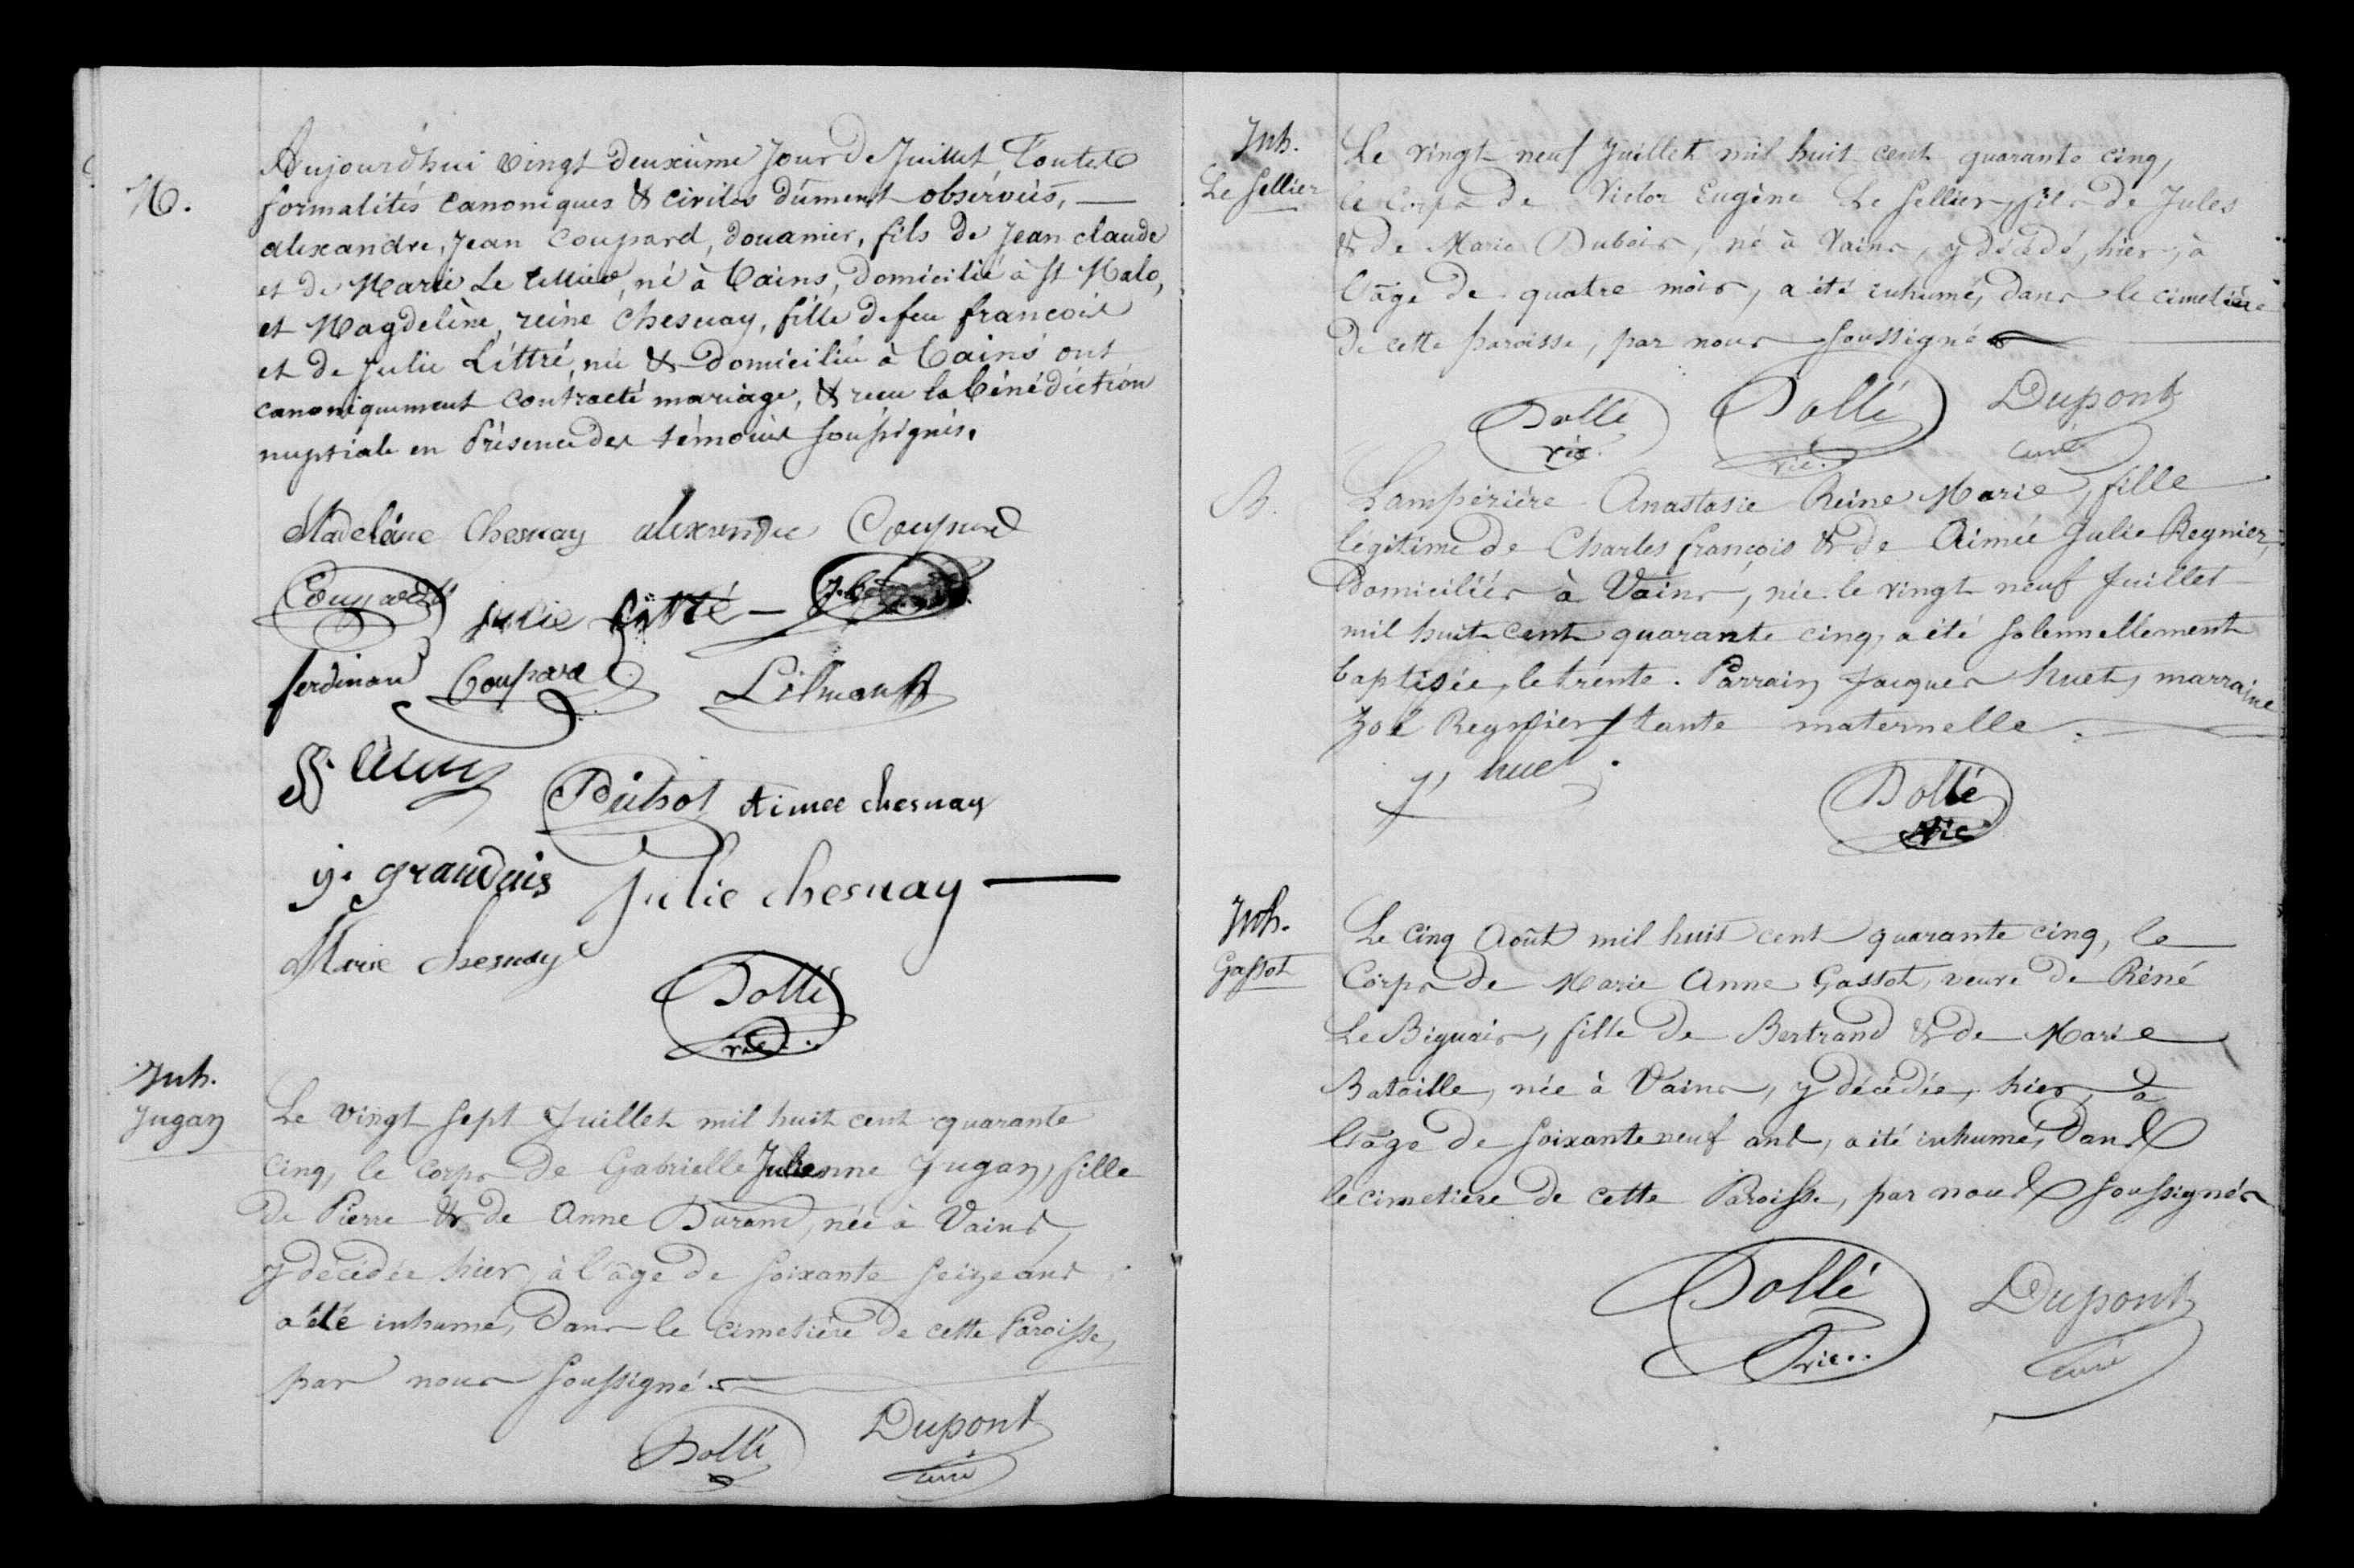 M.
Aujourd'hui vingt deuxième jour de Juillet Toutes
formalités canoniques & civiles dûment observées, —
alexandre, Jean Coupard, douanier, fils de Jean claude
et de Marie Le tellier, né à Vains, domicilié à St Malo,
et Magdelène, reine Chesnay, fille de feu françois
et de Julie Littré, née & domiciliée à Vains ont
canoniquement contracté mariage, & reçu la bénédiction
nuptiale en Présence des témoins soussignés.
Madelaine Chesnay alexandre Coupard
Coupard julie littré —
ferdinan Coupard
Aimée chesnay
Julie chesnay —
Marie chesnay
Dollé
vic.
Inh.
Jugan
Le vingt sept Juillet mil huit cent quarante
cinq, le corps de Gabrielle Julienne Jugan, fille
de Pierre & de Anne Durand, née à Vains,
y décédée hier, à l'âge de soixante seize ans
a été inhumé, dans le cimetière de cette Paroisse,
par nous soussignés
Dollé Dupont
curé
Inh.
Le Sellier
Le vingt neuf Juillet mil huit cent quarante cinq,
le corps de Victor Eugène Le Sellier, fils de Jules
& de Marie Dubois, né à Vains, y décédé, hier, à
l'âge de quatre mois, a été inhumé, dans le cimetière
de cette paroisse, par nous soussignés
Dollé Dollé Dupont
vic. vic. curé
B.
Lampérière Anastasie Reine Marie, fille
légitime de Charles françois & de Aimée Julie Regnier,
domiciliés à Vains, née le vingt neuf Juillet
mil huit cent quarante cinq, a été solennellement
baptisée, le trente. Parrain Jacques huet, marraine
Zoé Regnier tante maternelle.
J huet
Dollé
vic
Inh.
Gassot
Le cinq Août mil huit cent quarante cinq, le
Corps de Marie Anne Gassot, veuve de Réné
Le Biguais, fille de Bertrand & de Marie
Bataille, née à Vains, y décédée, hier, à
l'âge de soixante neuf ans, a été inhumé, dans
le cimetiere de cette Paroisse, par nous soussignés
Dollé Dupont
vic.. curé